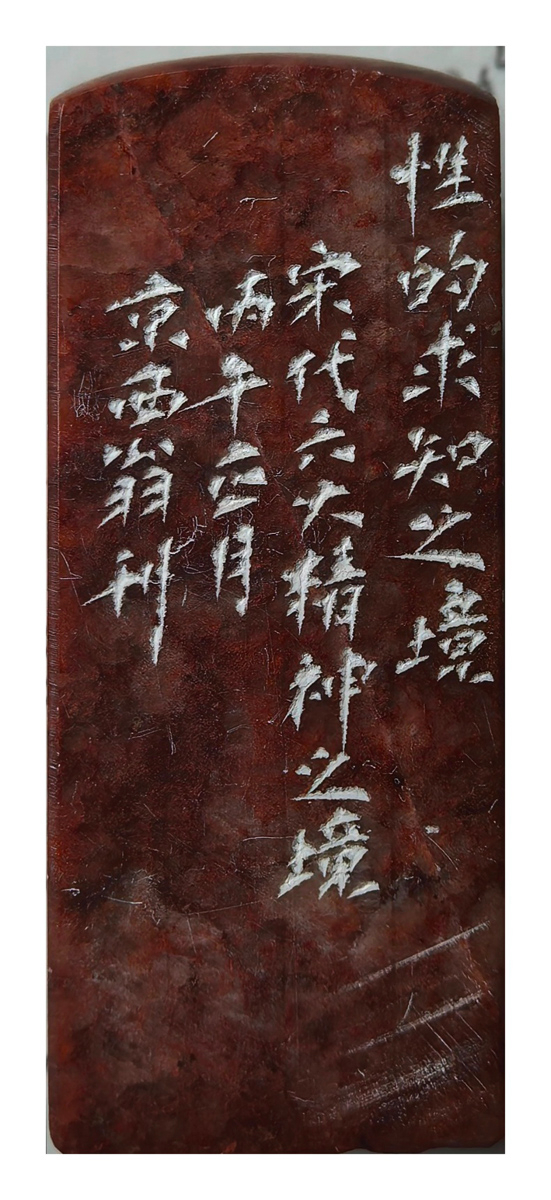 性的求知之境
宋代六大精神之境
丙午正月
京西翁刊